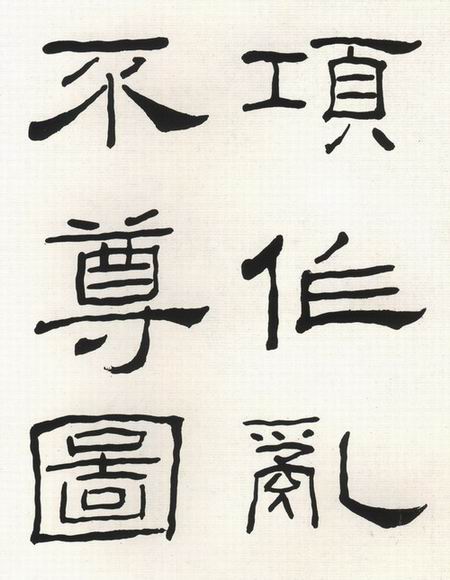 項作亂
不尊圖